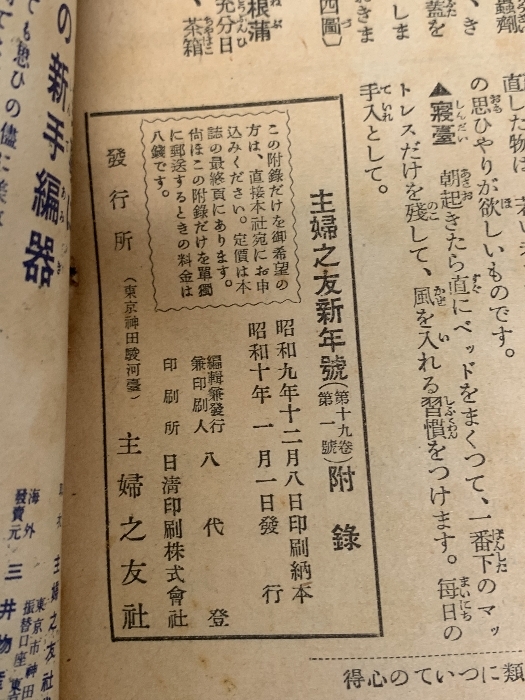 の思ひやりが欲しいものです。
▲寢臺 朝起きたら直にベッドをまくつて、一番下のマッ
トレスだけを殘して、風を入れる習慣をつけます。毎日の
手入として。
主婦之友新年號(第十九卷第一號)附錄
昭和九年十二月八日印刷納本
昭和十年一月一日發行
この附錄だけを御希望の
方は、直接本社宛にお申
込みください。定價は本
誌の最終頁にあります。
尙ほこの附錄だけを單獨
に郵送するときの料金は
八錢です。
編輯兼發行兼印刷人 八代登
印刷所 日淸印刷株式會社
發行所(東京神田駿河臺)主婦之友社
類についての心得
の新手編器
海外發賣元 三井物產